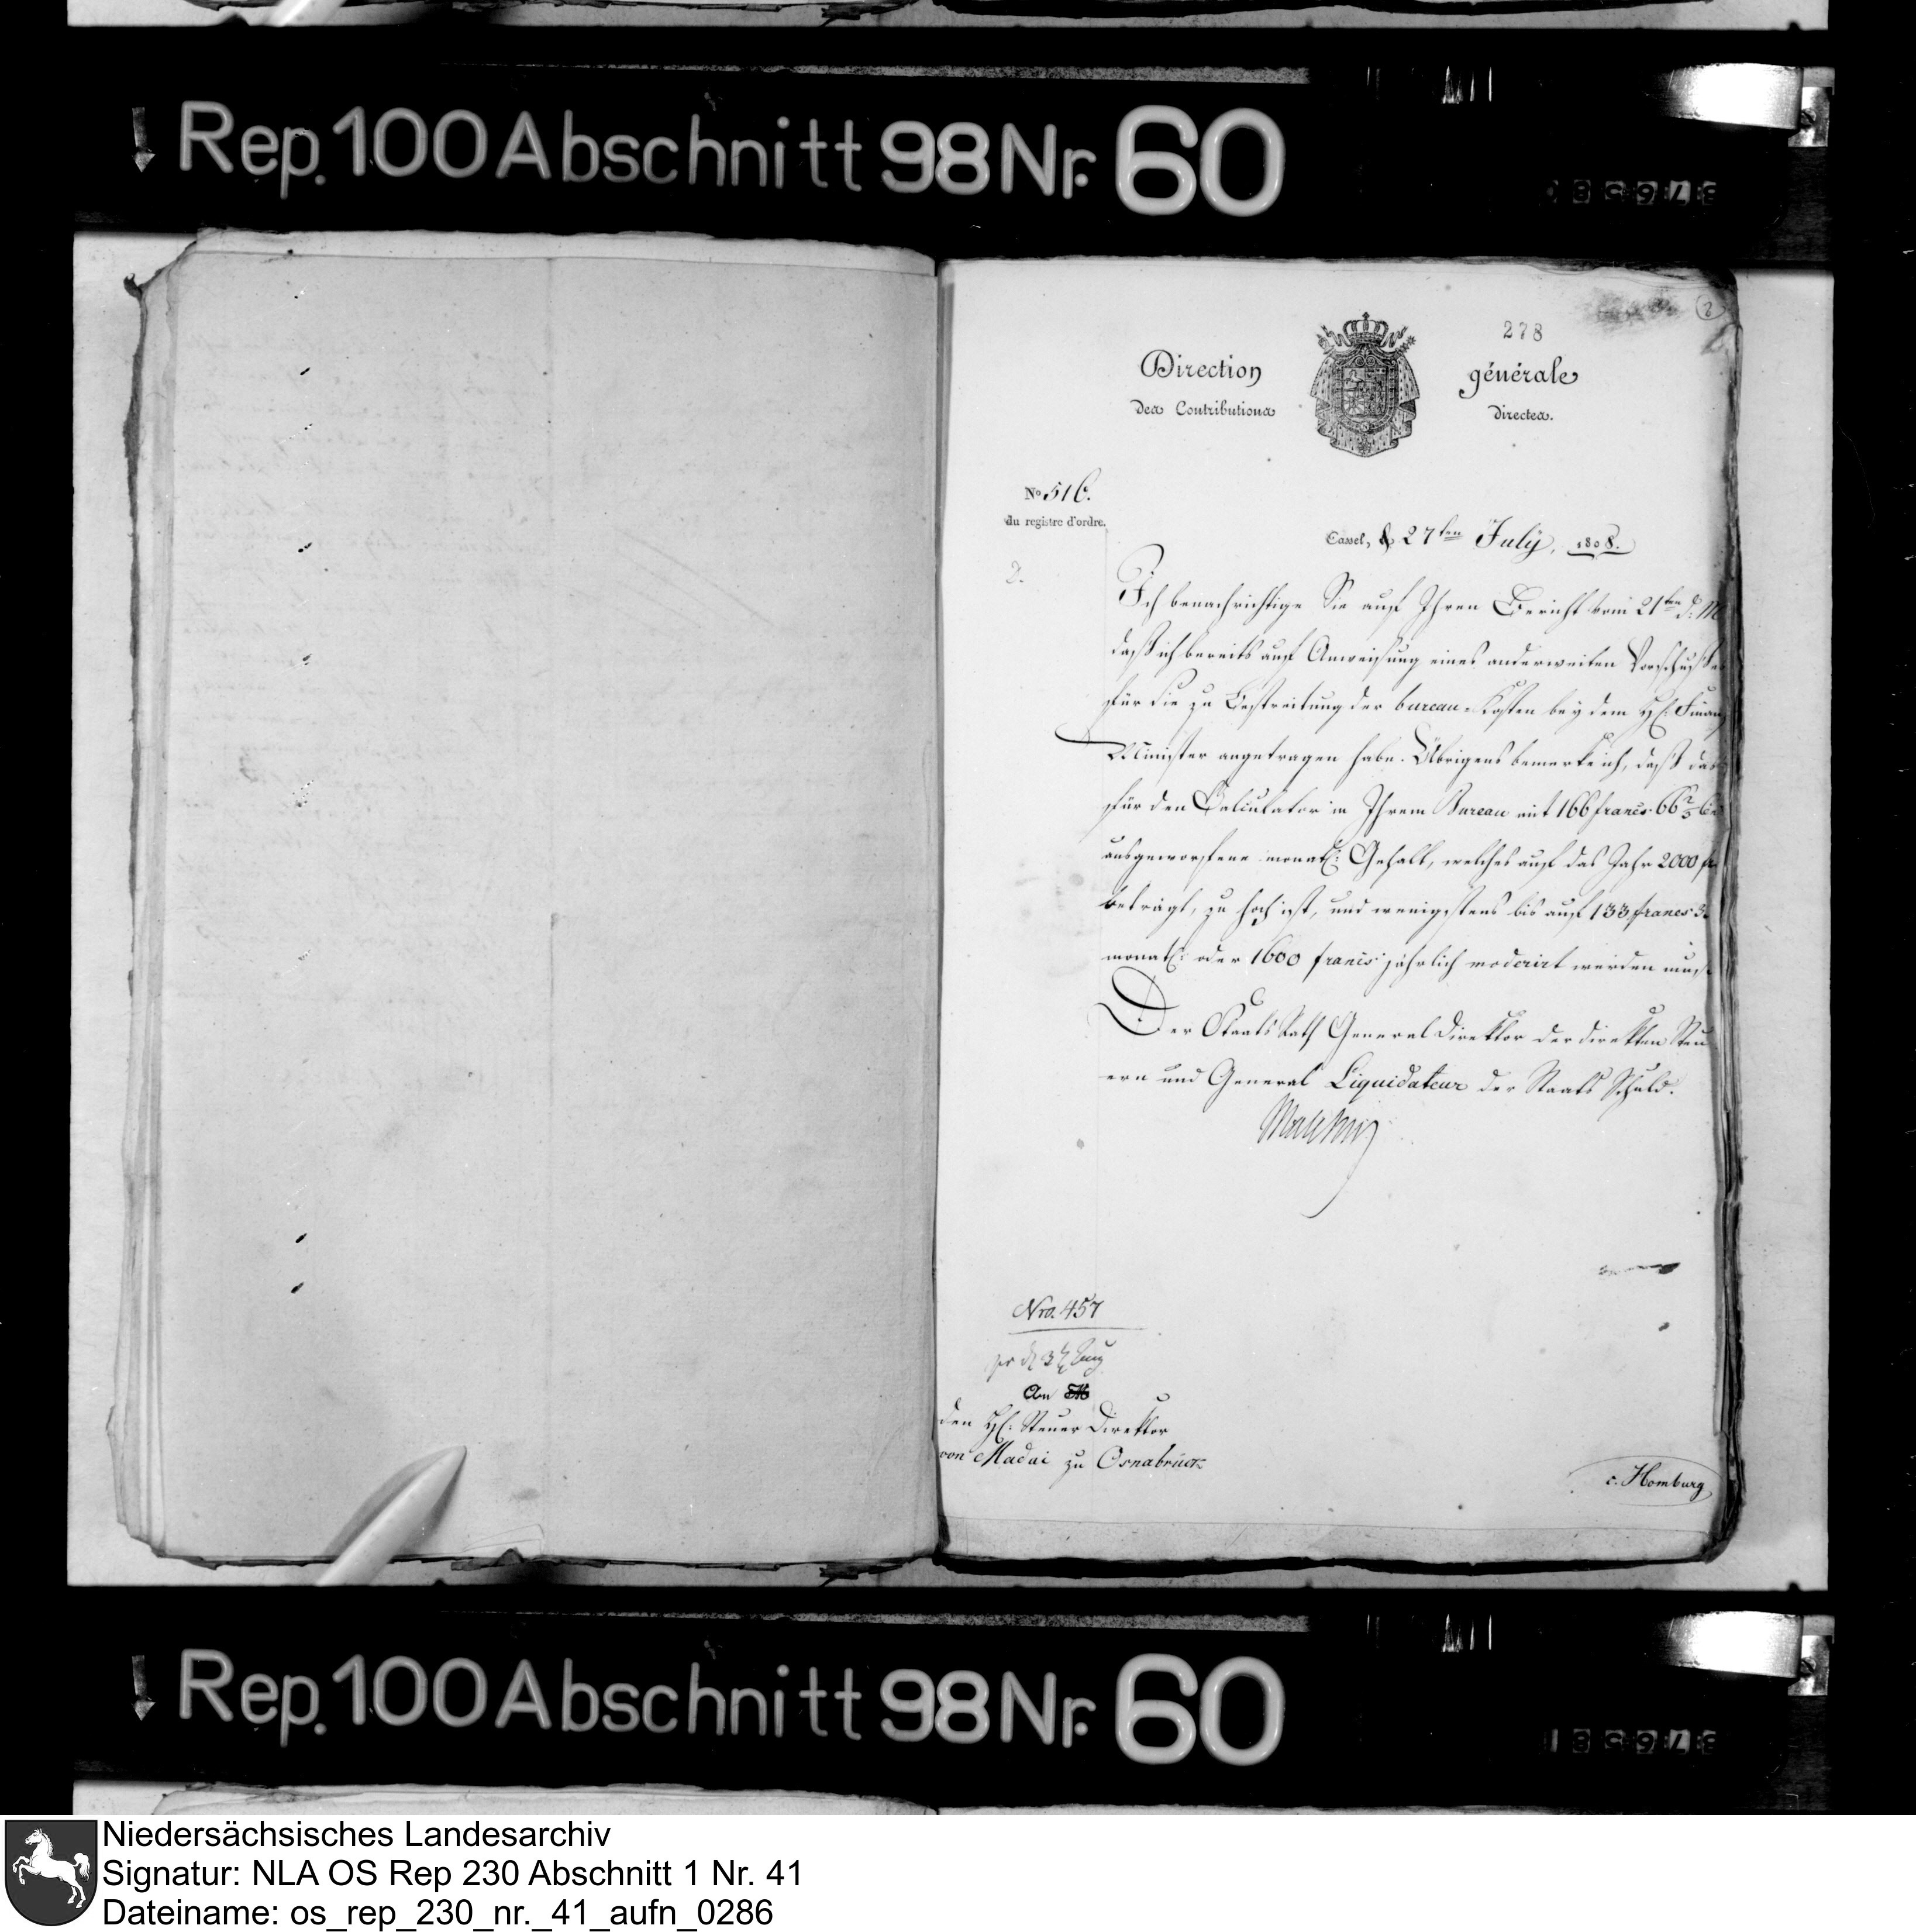 Rep. 100 Abschnitt 98 Nr. 60
278
Direction générale
des Contributions directes.
No 516.
du registre d'ordre.
Cassel, 27ten July, 1808.
2.
Ich benachrichtige Sie auf Ihren Bericht vom 21ten d. M
daß ich bereits auf Anweisung eines anderweiten Vorschußes
für Sie zu Bestreitung der bureau-Kosten bey dem H. Finanz
Minister angetragen habe. Übrigens bemerke ich, daß das
für den Calculator in Ihrem Bureau mit 166 francs 66 2/3
ausgeworfene monatl: Gehalt, welches auf das Jahr 2000 fr
beträgt, zu hoch ist, und wenigstens bis auf 133 francs
monatl: oder 1600 francs jährlich moderirt werden muß
Der Staats Rath General Direktor der direkten Steu
ern und General Liquidateur der Staats Schuld.
Malchus
Nro. 457
An
den H. Steuer Direktor
von Madai zu Osnabrück
c. Homburg
Rep. 100 Abschnitt 98 Nr. 60
Niedersächsisches Landesarchiv
Signatur: NLA OS Rep 230 Abschnitt 1 Nr. 41
Dateiname: os_rep_230_nr._41_aufn_0286